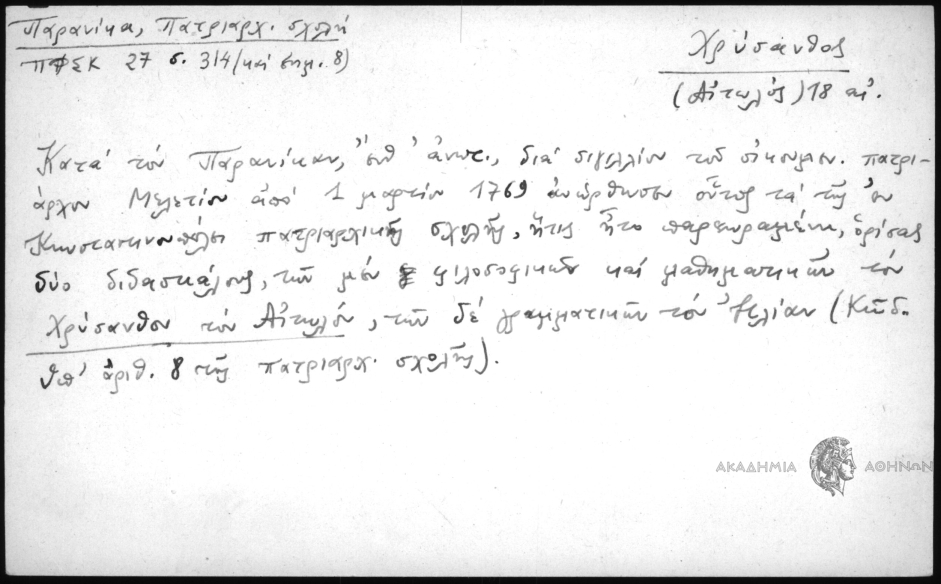 Παρανίκα, Πατριαρχ. σχολή
ΠΦΣΚ 27 σ. 314 (καί σημ. 8)
Χρύσανθος
(Αἰτωλός) 18 αἰ.
Κατά τόν Παρανίκαν, ἔνθ' ἀνωτ., διά σιγιλλίου τοῦ οἰκουμεν. πατρι-
άρχου Μελετίου ἀπό 1 μαρτίου 1769 ἀνώρθωσεν οὗτος τά τῆς ἐν
Κωνσταντινουπόλει πατριαρχικῆς σχολῆς, ἥτις ἦτο παρευραμένη, ὁρίσας
δύο διδασκάλους, τῶν μέν φιλοσοφικῶν καί μαθηματικῶν τόν
Χρύσανθον τόν Αἰτωλόν, τῶν δέ γραμματικῶν τόν Ἠλίαν (Κῶδ.
ὑπ' ἀριθ. 8 τῆς πατριαρχ. σχολῆς).
ΑΚΑΔΗΜΙΑ ΑΘΗΝΩΝ